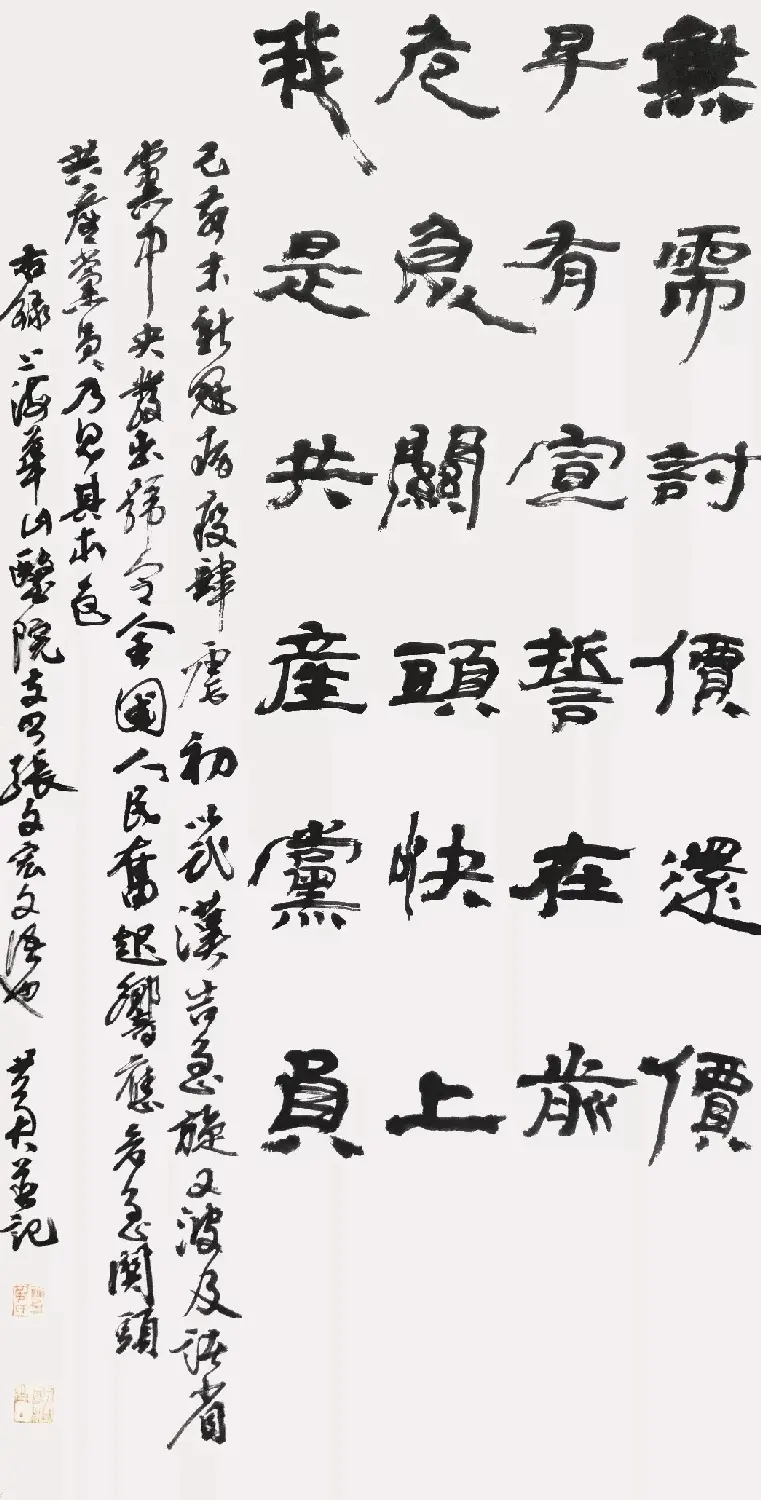 無需討價還價
早有宣誓在前
危急關頭快上
我是共產黨員
己亥末新冠病疫肆虐初武漢告急旋又波及诸省
黨中央發出號令全國人民奮起響應危急関頭
共產黨員乃見其本色
右録上海華山醫院支书張文宏文語也
並記